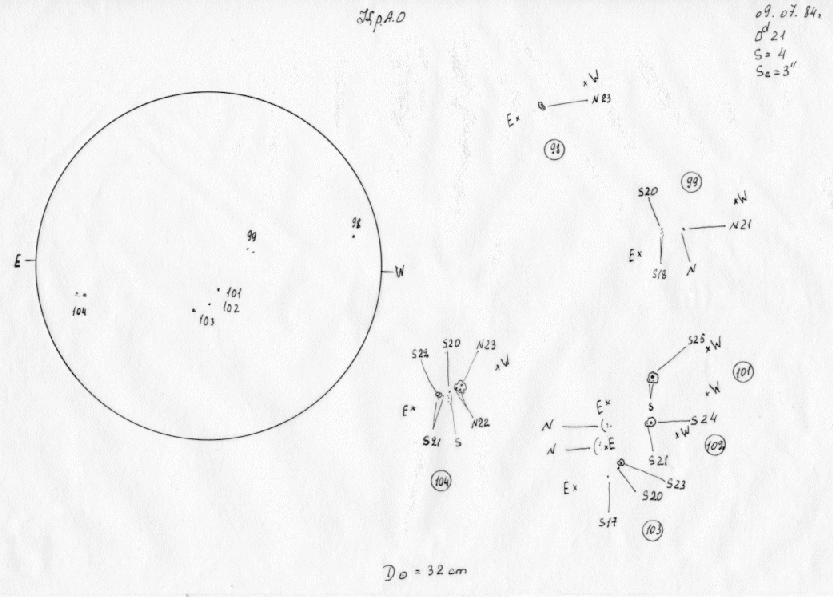 КрАО
09.07.84г.
0ᵈ21
S = 4
Sa = 3"
W
E
N23
98
99
S20
W
N21
E
S18
N
98
99
E
W
101
102
103
104
S20
N23
S22
W
E
N22
S21
S
104
S25
W
101
S
W
E
N
S24
W
102
N
E
S21
S23
S20
E
S17
103
D⊙ = 32 cm